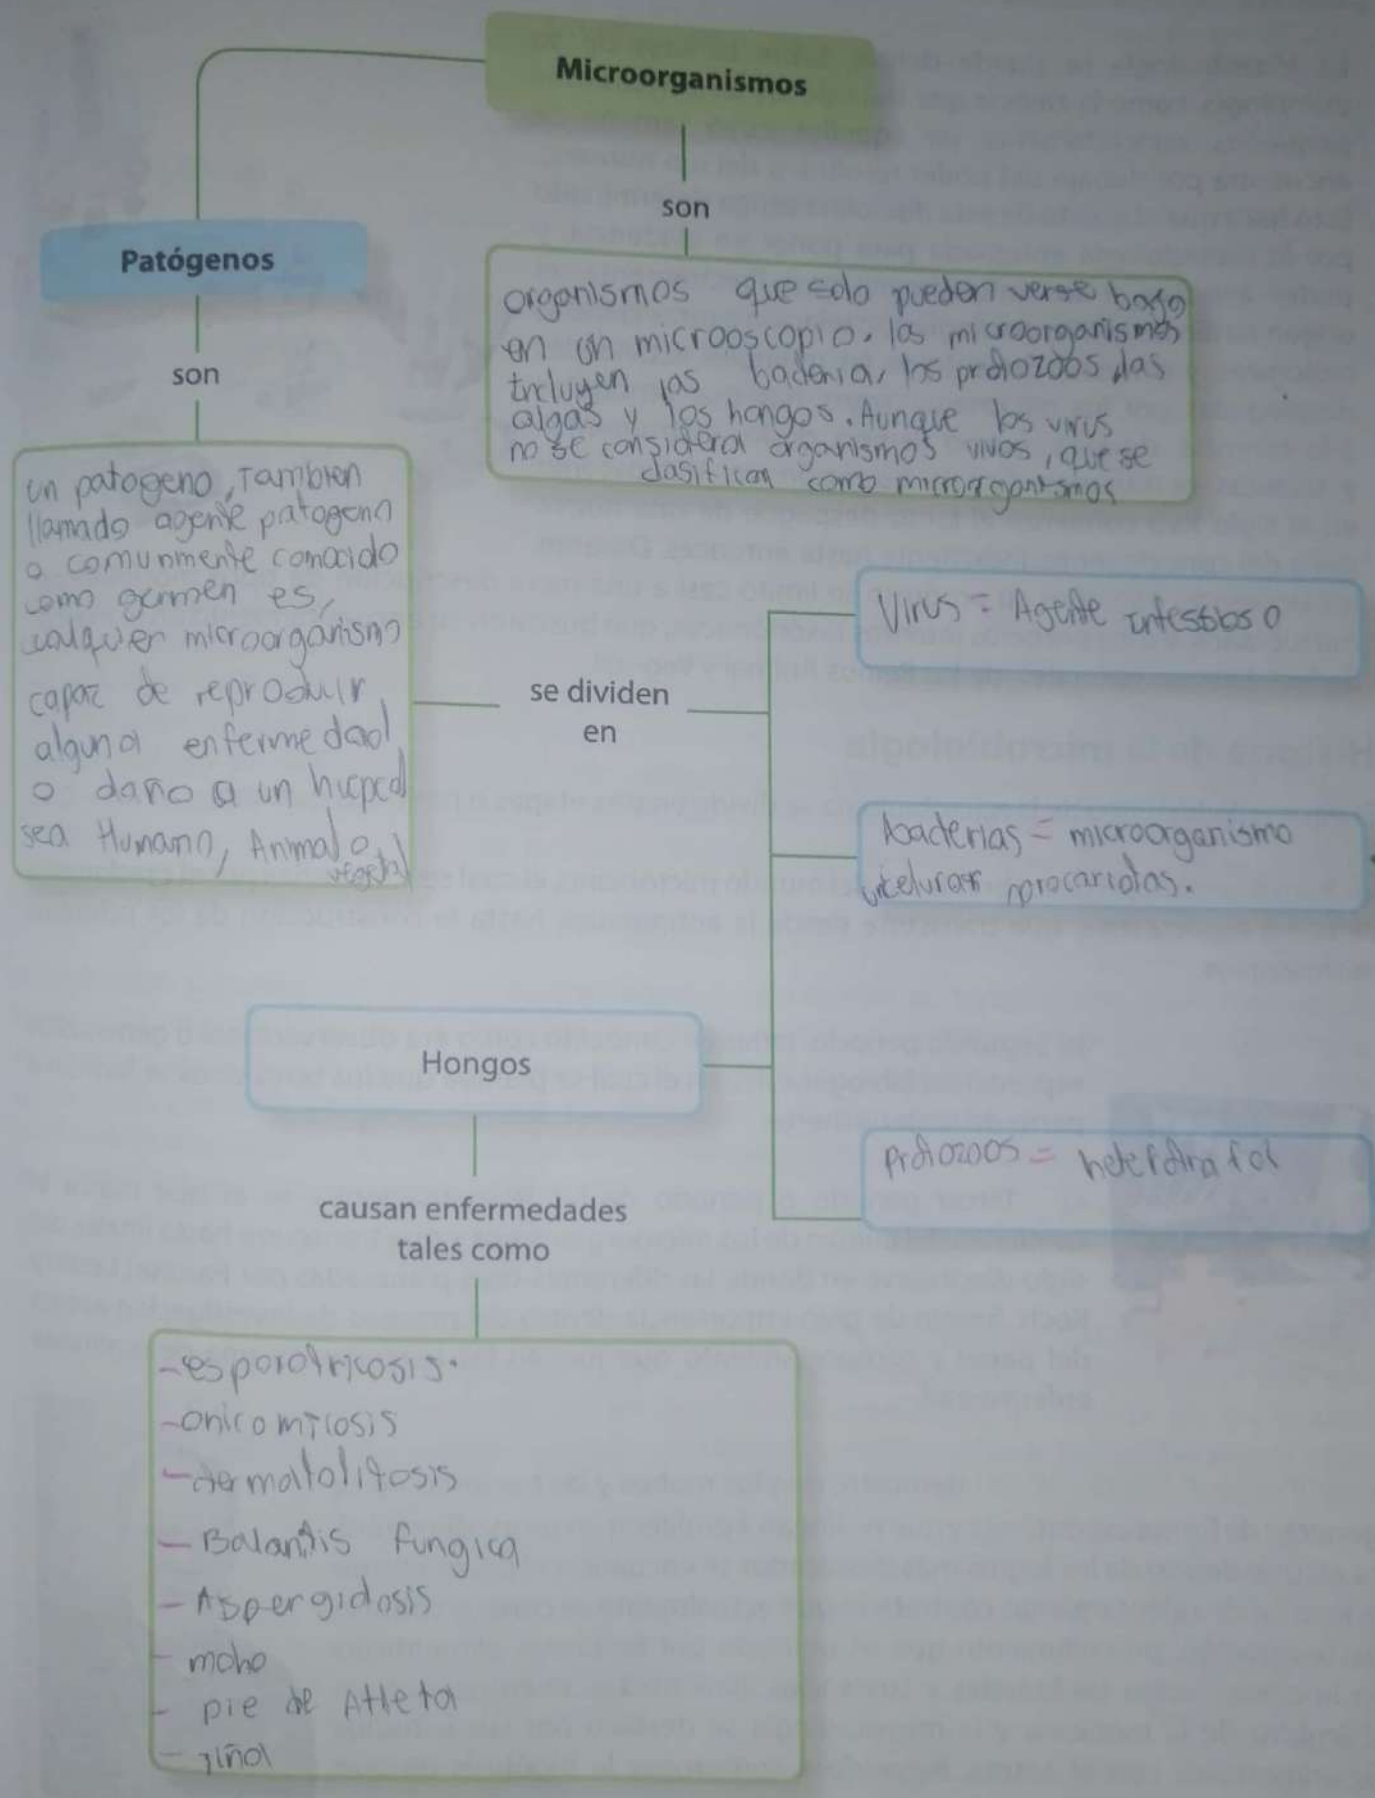 Microorganismos
son
organismos que solo pueden verse bajo
en un microoscopio. los microorganismos
Incluyen las bacteria, los protozoos, las
algas y los hongos. Aunque los virus
no se considera organismos vivos, que se
clasifican como microorganismos
Patógenos
son
un patogeno, Tambien
llamado agente patogeno
o comunmente comocido
como germen es,
cualquier microorganismo
capaz de reproducir
alguna enfermedad
o daño a un
sea Humano, Animal o
vegetal
se dividen
en
Virus = Agente
bacterias = microorganismo
procariotas.
Hongos
protozoos =
causan enfermedades
tales como
- esporotricosis.
- onicomicosis
- dermatolitosis
- Balanitis fungica
- Aspergidosis
- moho
- pie de Atleta
- tiña